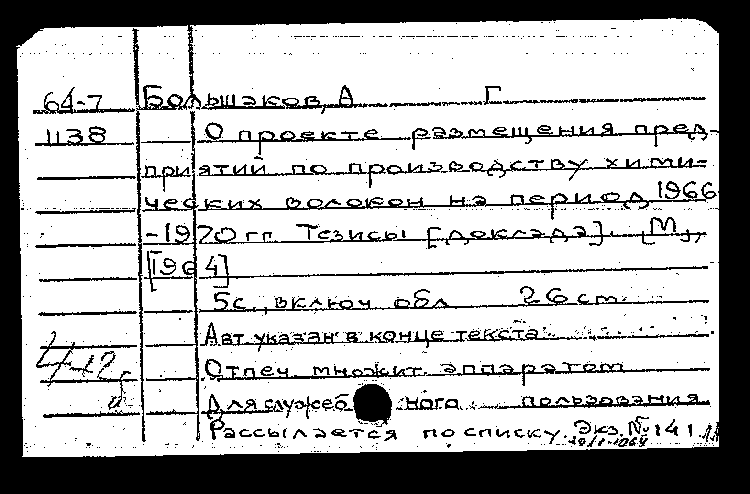 64-7 Большаков, А Г
1138 О проекте размещения пред-
приятий по производству хими-
ческих волокон на период 1966
-1970 гг Тезисы [доклада]. [М.,
[1964]
5с., включ обл 26 см.
Авт указан в конце текста
Отпеч. множит. аппаратом
Для служебного пользования
Рассылается по списку. Экз. № 141